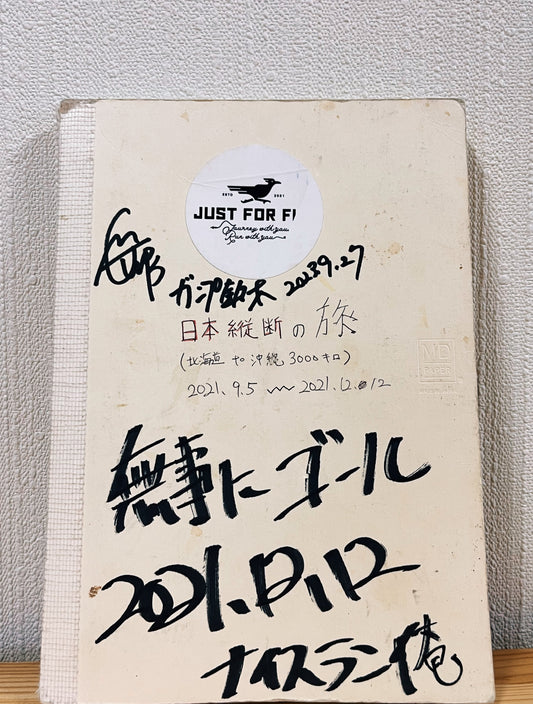 ESTD 2021
JUST FOR F
Journey with you
Run with you
ガンプ鈴木 2023 9.27
日本縦断の旅
(北海道 to 沖縄 3000キロ)
2021.9.5 〜 2021.12.12
MD
PAPER
無事にゴール
2021.12.12
ナイスラン俺